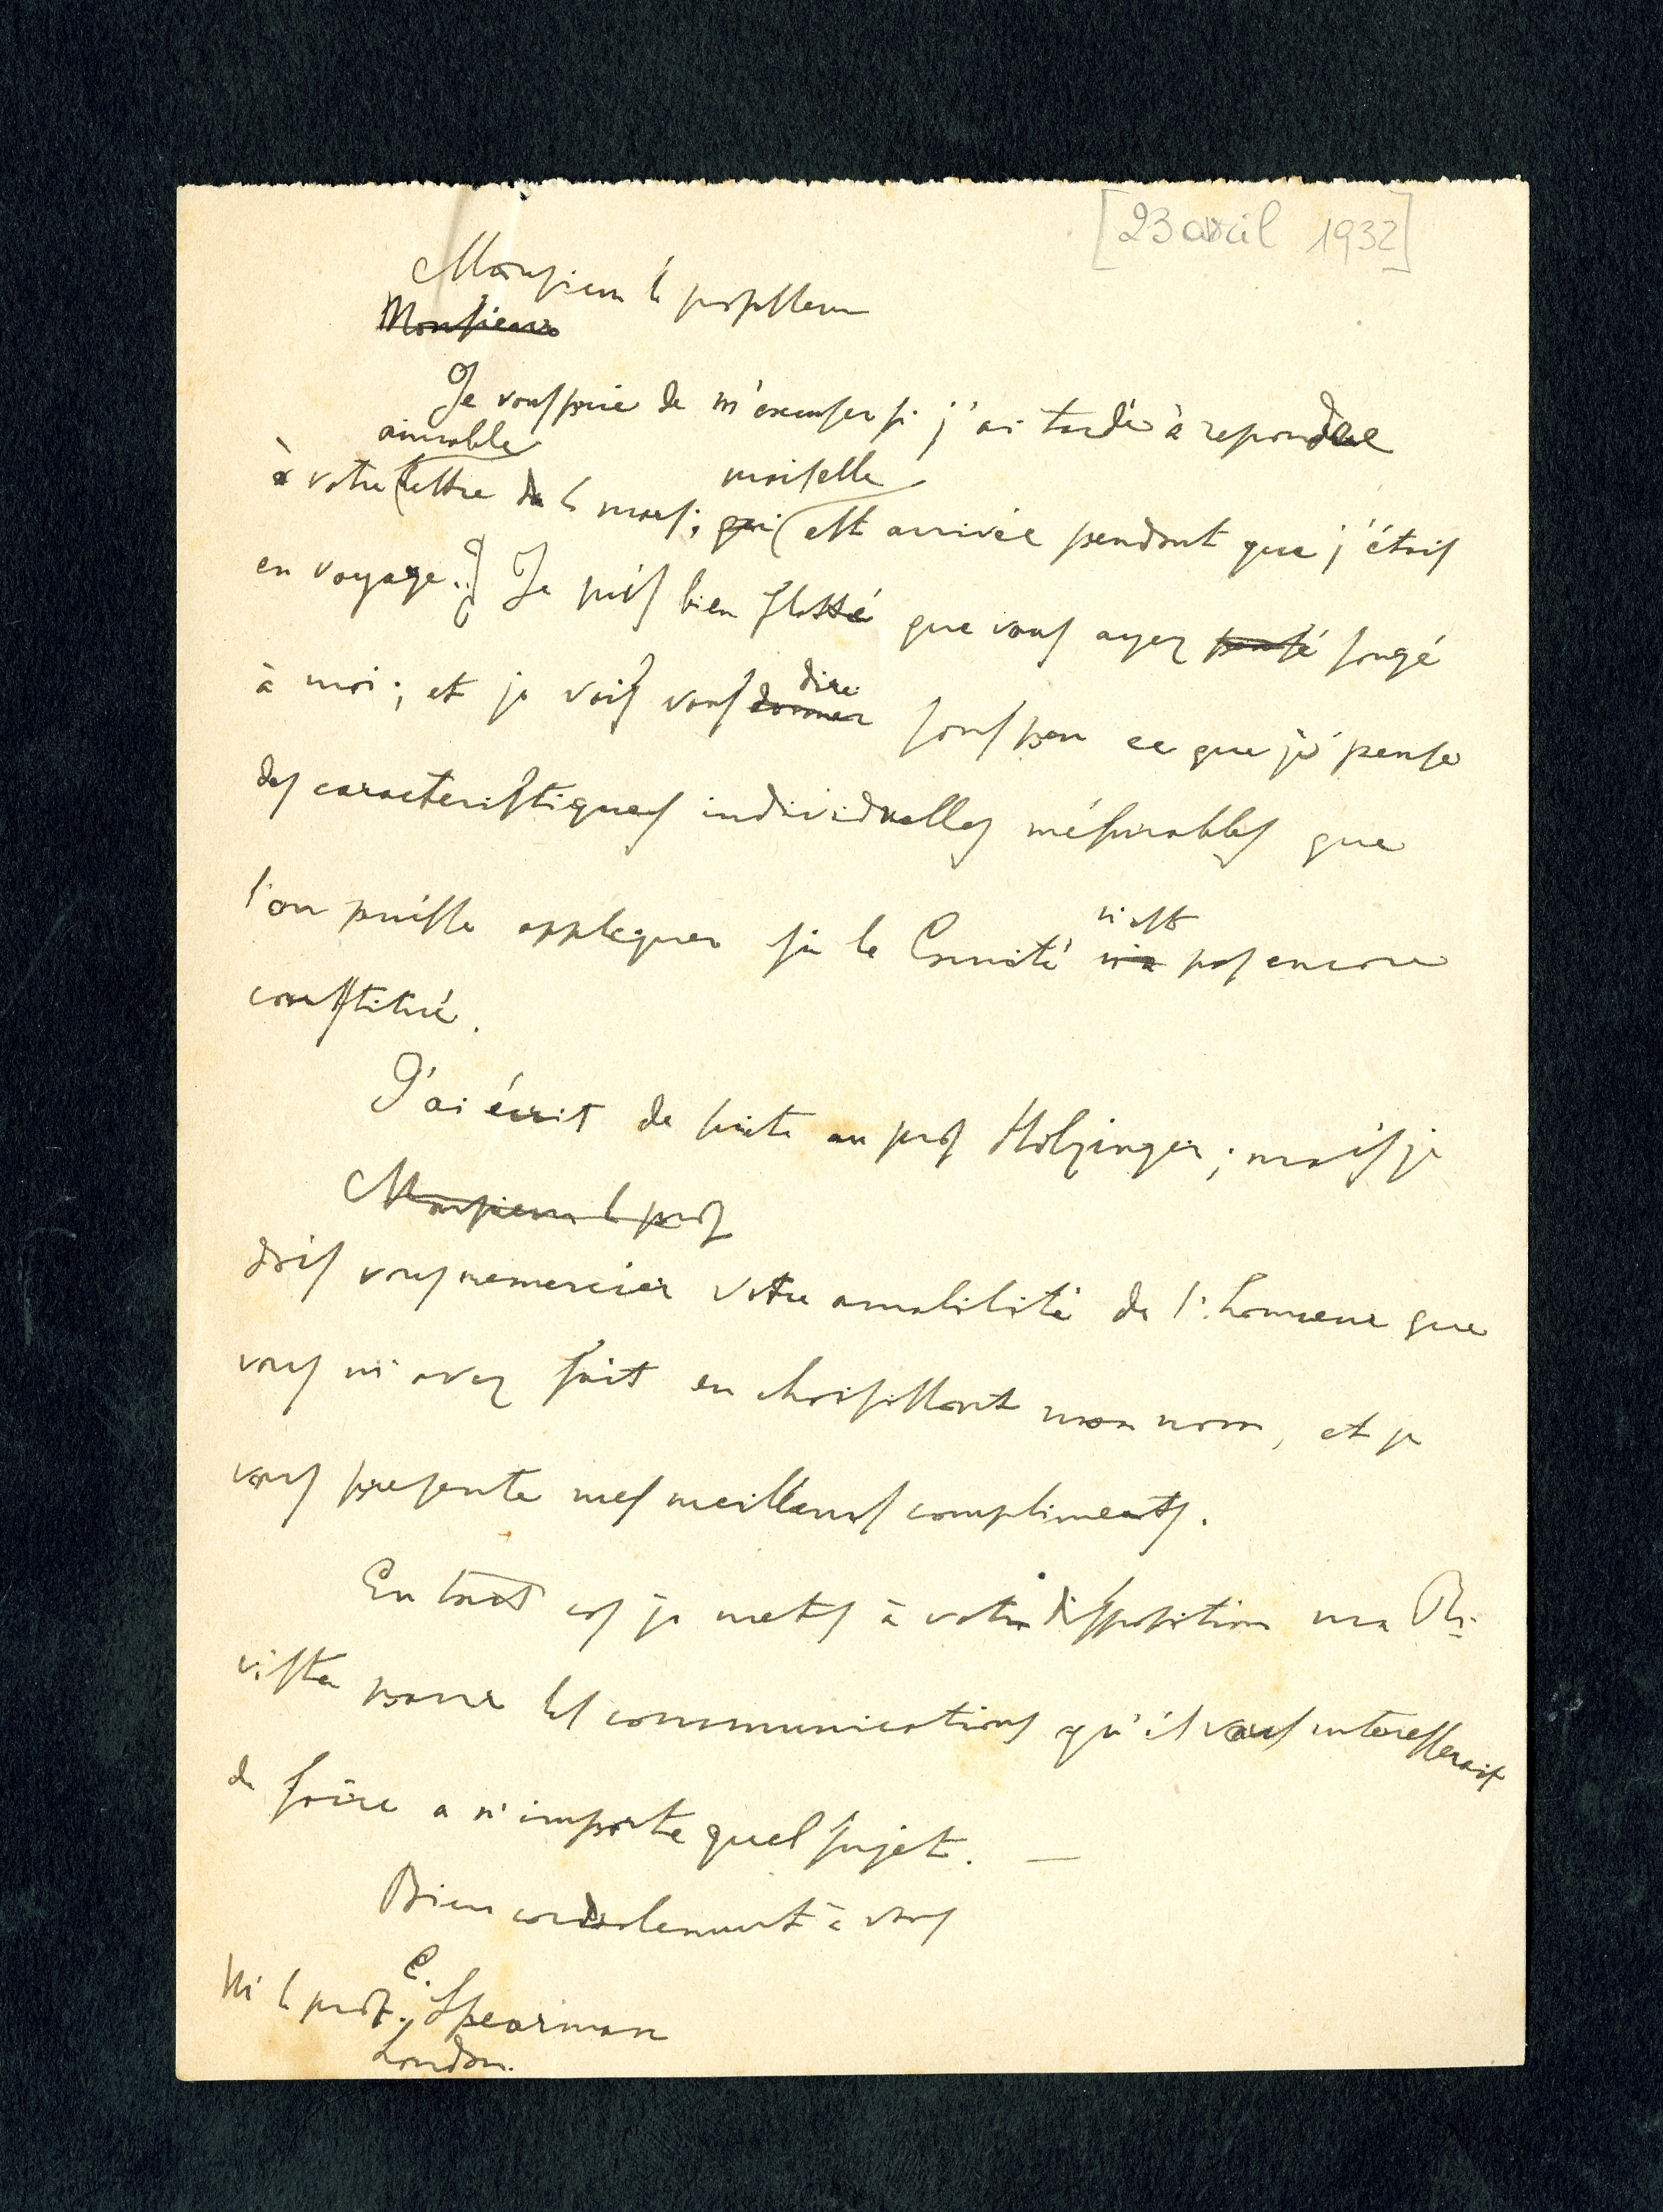 [23 avril 1932]
Monsieur le professeur
Monsieur
Je vous prie de m'excuser si j'ai tardé à repondre
aimable
à votre lettre de le mars; qui est arrivée pendant que j'étais
en voyage. Je suis bien flatté que vous ayez pensé songé
à moi; et je vais vous donner dire sous peu ce que je pense
des caracteristiques individuelles mésurables que
l'on puisse appliquer si le Comité n'a n'est pas encore
constitué.
J'ai écrit de suite au prof Holzinger; mais je
Monsieur le prof
dois vous remercier votre amabilité de l'honneur que
vous m'avez fait en choisissant mon nom, et je
vous presente mes meilleurs compliments.
En tout cas je mets à votre disposition ma Ri-
vista pour les communications qu'il vous interesserait
de faire a n'importe quel sujet. —
Bien cordialement à vous
le prof. C. Spearman
London.